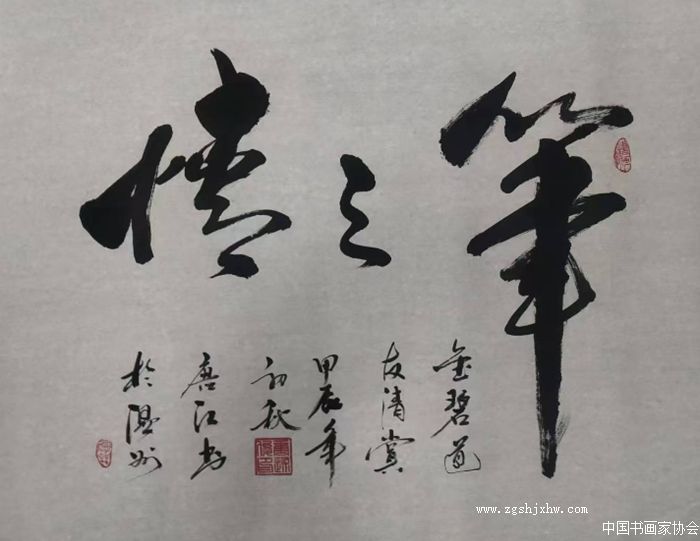 筆之情
金碧道
友清賞
甲辰年
初秋
唐江书
於温州
www.zgshjxhw.com
中国书画家协会